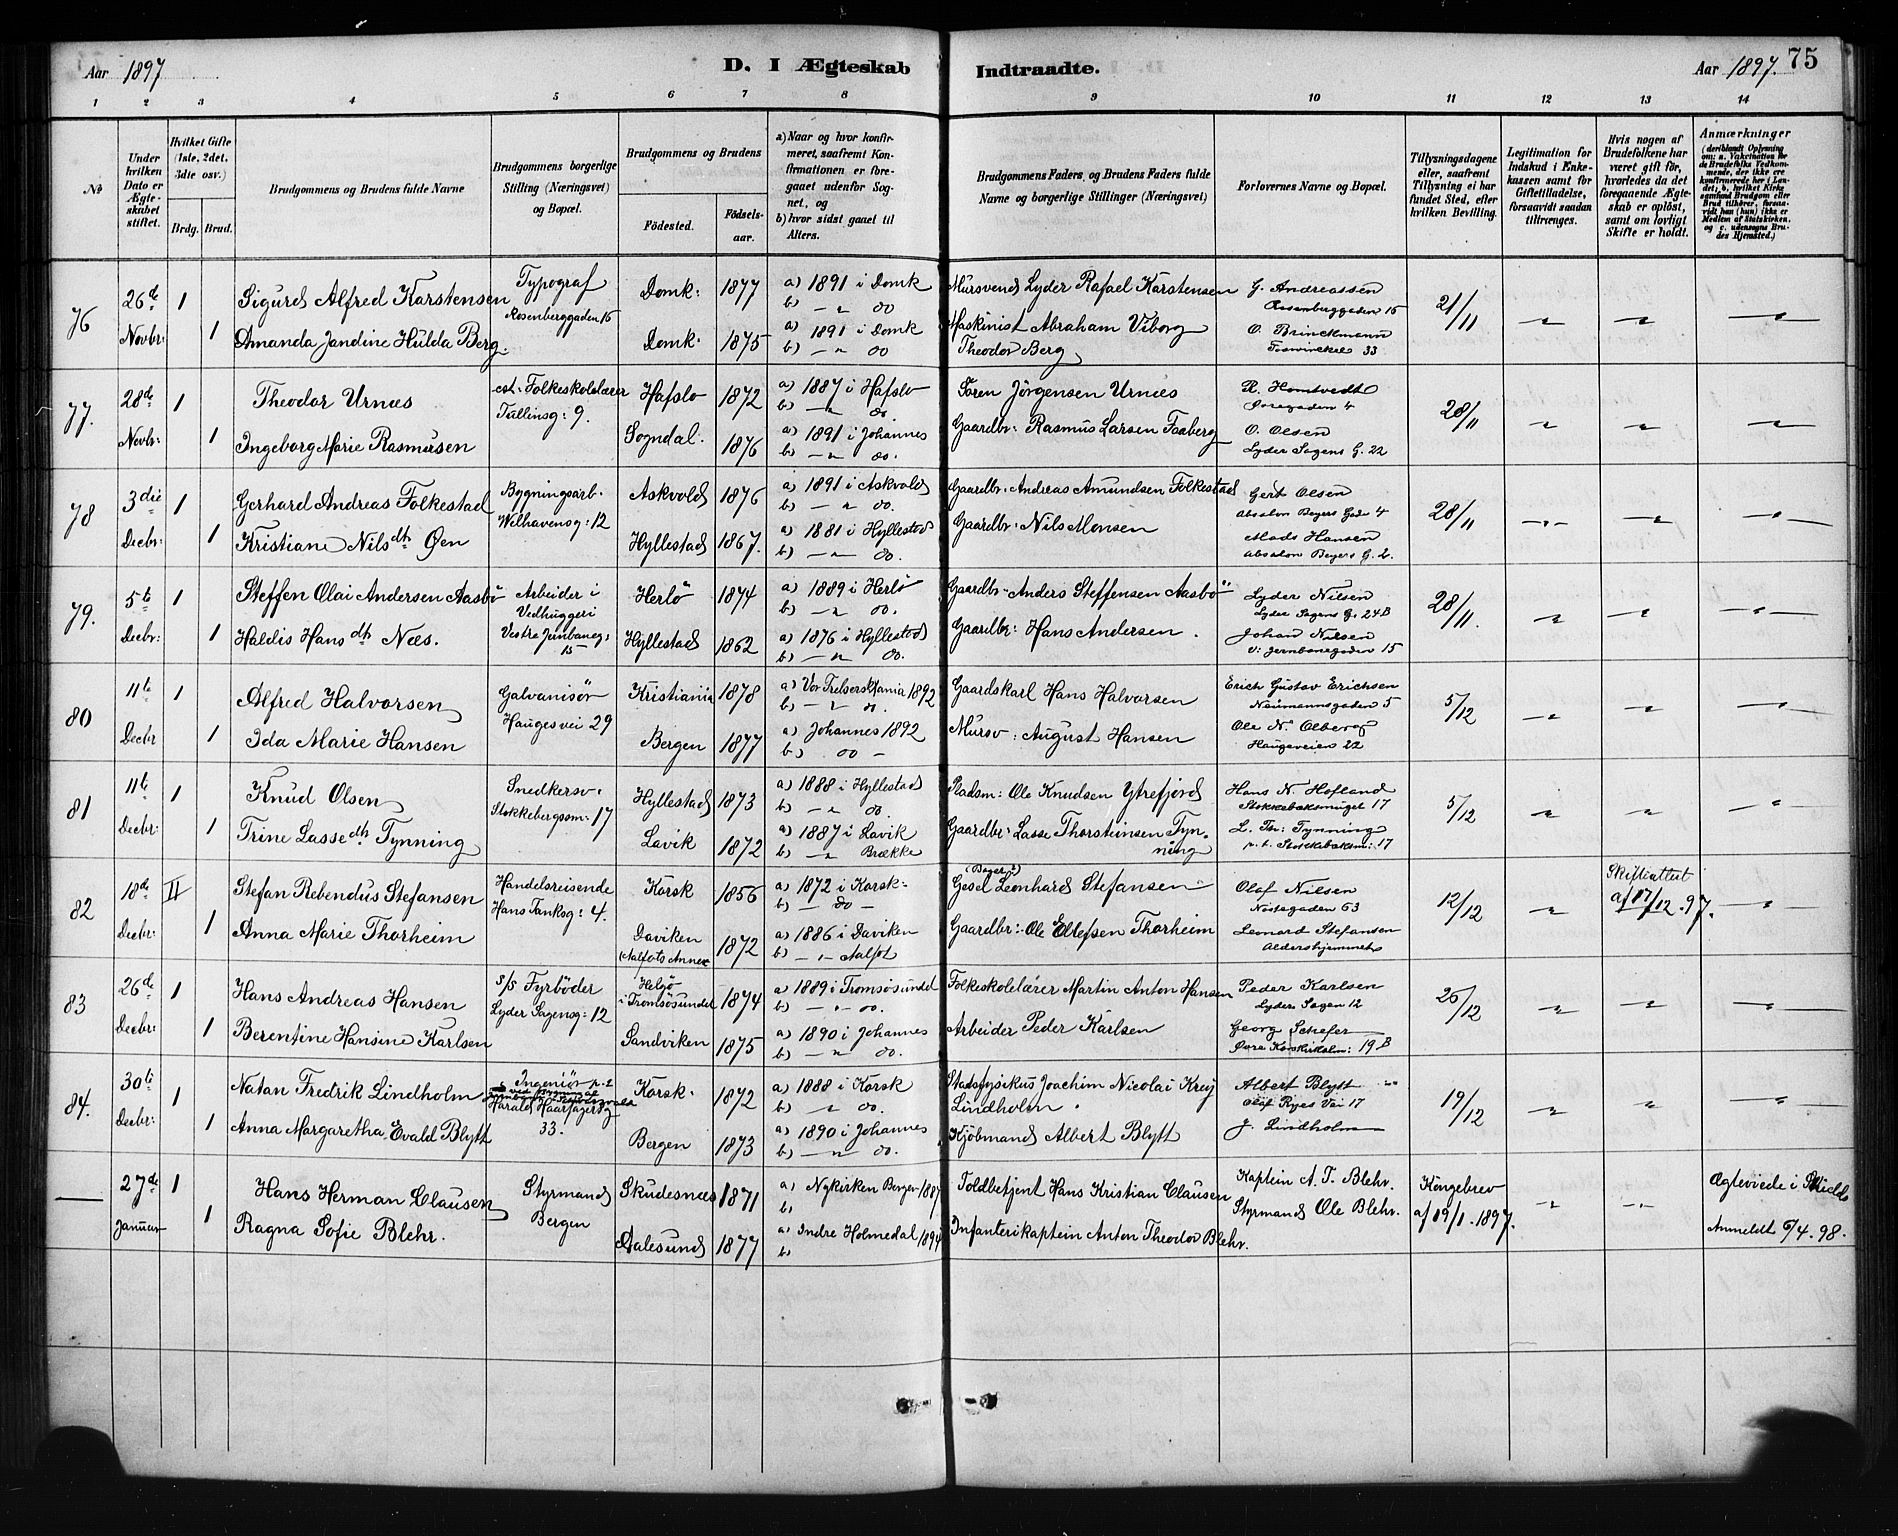 Aar 1897
D. I Ægteskab Indtraadte.
Aar 1897. 75
1 2 3 4 5 6 7 8 9 10 11 12 13 14
No
Under hvilken Dato er Ægteskabet stiftet.
Hvilket Gifte (1ste, 2det, 3die osv.)
Brdg. Brud.
Brudgommens og Brudens fulde Navne
Brudgommens borgerlige Stilling (Næringsvei) og Bopæl.
Brudgommens og Brudens
Födested. Födsels-aar.
a) Naar og hvor konfirmeret, saafremt Konfirmationen er foregaaet udenfor Sognet, og
b) hvor sidst gaaet til Alters.
Brudgommens Faders og Brudens Faders fulde Navne og borgerlige Stillinger (Næringsvei)
Forlovernes Navne og Bopæl.
Tillysningsdagene eller, saafremt Tillysning ei har fundet Sted, efter hvilken Bevilling.
Legitimation for Indskud i Enkekassen samt for Giftetilladelse, forsaavidt saadan tiltrænges.
Hvis nogen af Brudefolkene har været gift för, hvorledes da det foregaaende Ægteskab er oplöst, samt om lovligt Skifte er holdt.
Anmærkninger (deriblandt Oplysning om: a. Vakcination for de Brudefolks Vedkommende, der ikke ere konfirmerede her i Landet; b. hvilket Kirkesamfund Brudgom eller Brud tilhörer, forsaavidt han (hun) ikke er Medlem af Statskirken, og c. udensogns Brudes Hjemsted.)
76 26de Novbr: 1 Sigurd Alfred Karstensen Typograf Rosenberggaden 15 Domk: 1877 a) 1891 i Domk b) — " do Mursvend Lyder Rafael Karstensen G. Andreassen Rosenberggaden 15 21/11 — " — " — "
1 Amanda Jandine Hulda Berg. Domk. 1875 a) 1891 i Domk b) — " do Maskinist Abraham Viborg Theodor Berg O. Brinckmann 33
77. 28de Novbr: 1 Theodor Urnæs cst. Folkeskolelærer Tullinsg: 9. Hafslo 1872 a) 1887 i Hafslo b) — " do. Sören Jörgensen Urnæs R. Homtvedt 4 28/11
1 Ingeborg Marie Rasmusen Sogndal. 1876 a) 1891 i Johannes b) — " do. Gaardbr: Rasmus Larsen Faaberg O. Olsen Lyder Sagens G. 22
78 3die Decbr: 1 Gerhard Andreas Folkestad Bygningsarb. Welhavensg: 12 Askvold 1876 a) 1891 i Askvold b) — " do. Gaardbr. Andreas Amundsen Folkestad Gert Olsen Absalon Beyers Gade 4 28/11
1 Kristiane Nilsdtr Øen Hyllestad 1867. a) 1881 i Hyllestad b) — " do. Gaardbr: Nils Monsen Mads Hansen Absalon Beyers G. 2.
79. 5te Decbr: 1 Steffen Olai Andersen Aasbö Arbeider i Vedhuggeri Vestre Jernbaneg: 15 Herlö 1874 a) 1889 i Herlö b) — " do. Gaardbr. Anders Steffensen Aasbö Lyder Nilsen Lyder Sagens G. 24B 28/11.
1 Haldis Hansdtr Næs. Hyllestad 1862 a) 1876 i Hyllestad b) — " do. Gaardbr: Hans Andersen. Johan Nilsen V. Jernbanegaden 15
80 11te Decbr 1 Alfred Halvorsen Galvanisör Haugesvei 29 Kristiania 1878 a) Vor Frelsers Kr.ania 1892 b) — " do. Gaardskarl Hans Halvorsen Erich Gustav Erichsen Naumannsgaden 5 5/12
1 Ida Marie Hansen Bergen 1877 a) Johannes 1892 b) do — Mursv: August Hansen Ole N. Olberg Haugeveien 22
81 11te Decbr: 1 Knud Olsen Snedkersv. Stokkebergsm: 17 Hyllestad 1873 a) 1888 i Hyllestad b) — " do Pladsm: Ole Knudsen Ytrefjord Hans N. Hofland 17 5/12
1 Trine Lassedtr Tynning Lavik 1872 a) 1887 i Lavik b) — " Brække Gaardbr: Lasse Thorsteinsen Tynning L. Th: Tynning p. t. 17
82 18de Decbr: II Stefan Rebendus Stefansen Handelsreisende Hans Tanksg: 4. Korsk 1856 a) 1872 i Korsk: b) — do — (Bager?) Leonhard Stefansen Olaf Nilsen Nöstegaden 63 12/12 Skifteattest af 17/12. 97.
1 Anna Marie Thorheim Daviken (Aalfots Annex 1872 a) 1886 i Daviken b) — " — Aalfot Gaardbr: Ole Ellefsen Thorheim Leonard Stefansen Aldershjemmet
83 26de Decbr: 1 Hans Andreas Hansen S/S Fyrböder Lyder Sagensg: 12 Helgö i Tromsösundet 1874 a) 1889 i Tromsösundet b) — " — do. Folkeskolelærer Martin Anton Hansen Peder Karlsen Lyder Sagen 12 26/12
1 Berentine Hansine Karlsen Sandviken 1875 a) 1890 i Johannes b) — " do. Arbeider Peder Karlsen Georg Schefer Övre 19 B
84. 30te Decbr: 1 Natan Fredrik Lindholm Ingeniör Harald Haarfagersg 33. Korsk. 1872 a) 1888 i Korsk b) — " do. Stadsfysikus Joachim Nicolai Krey Lindholm. Albert Blytt Olaf Ryes Vei 17 19/12
1 Anna Margaretha Evald Blytt Bergen 1873 a) 1890 i Johannes b) — " do. Kjöbmand Albert Blytt J. Lindholm
— 27de Januar 1 Hans Herman Clausen Styrmand Bergen Skudesnæs 1871 a) Nykirken Bergen 1887 b) Toldbetjent Hans Kristian Clausen Kaptein A. T. Blehr. Styrmand Ole Blehr. Kongebrev af 19/1. 1897. Ægteviede i Anmeldt 6/4. 98.
1 Ragna Sofie Blehr. Aalesund 1877 a) Indre Holmedal 1894 b) Infanterikaptein Anton Theodor Blehr.